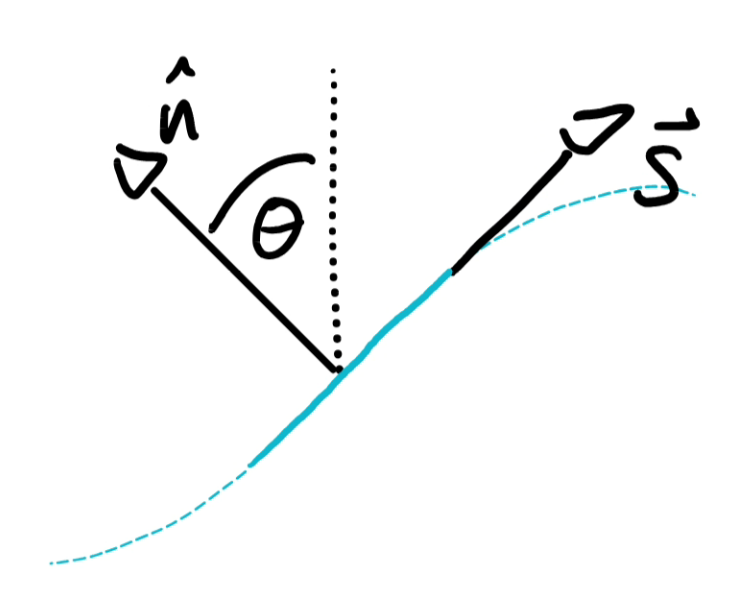 n̂
θ
s⃗